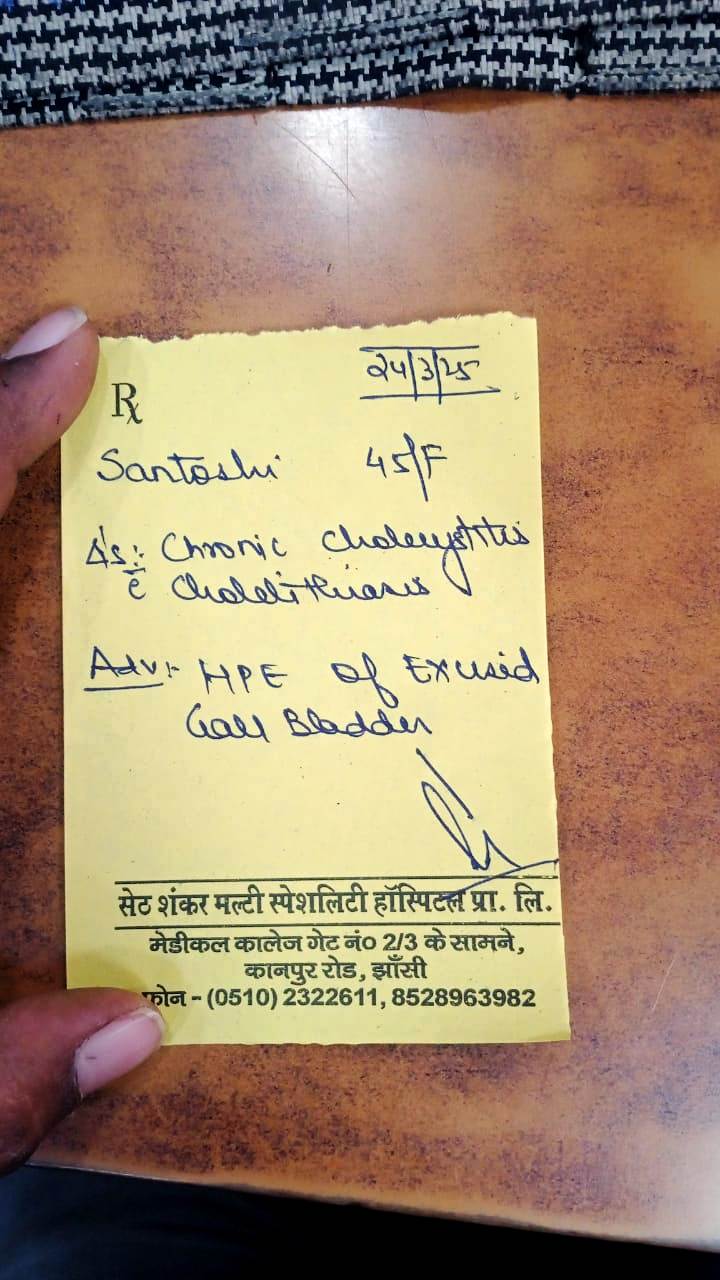 24/3/25
Rx
Santoshi 45/F
Δs:- Chronic Cholecystitis
c̄ Cholelithiasis
Adv:- HPE of Excised
Gall Bladder
सेठ शंकर मल्टी स्पेशलिटी हॉस्पिटल प्रा. लि.
मेडीकल कालेज गेट नं० 2/3 के सामने,
कानपुर रोड, झाँसी
फोन - (0510) 2322611, 8528963982